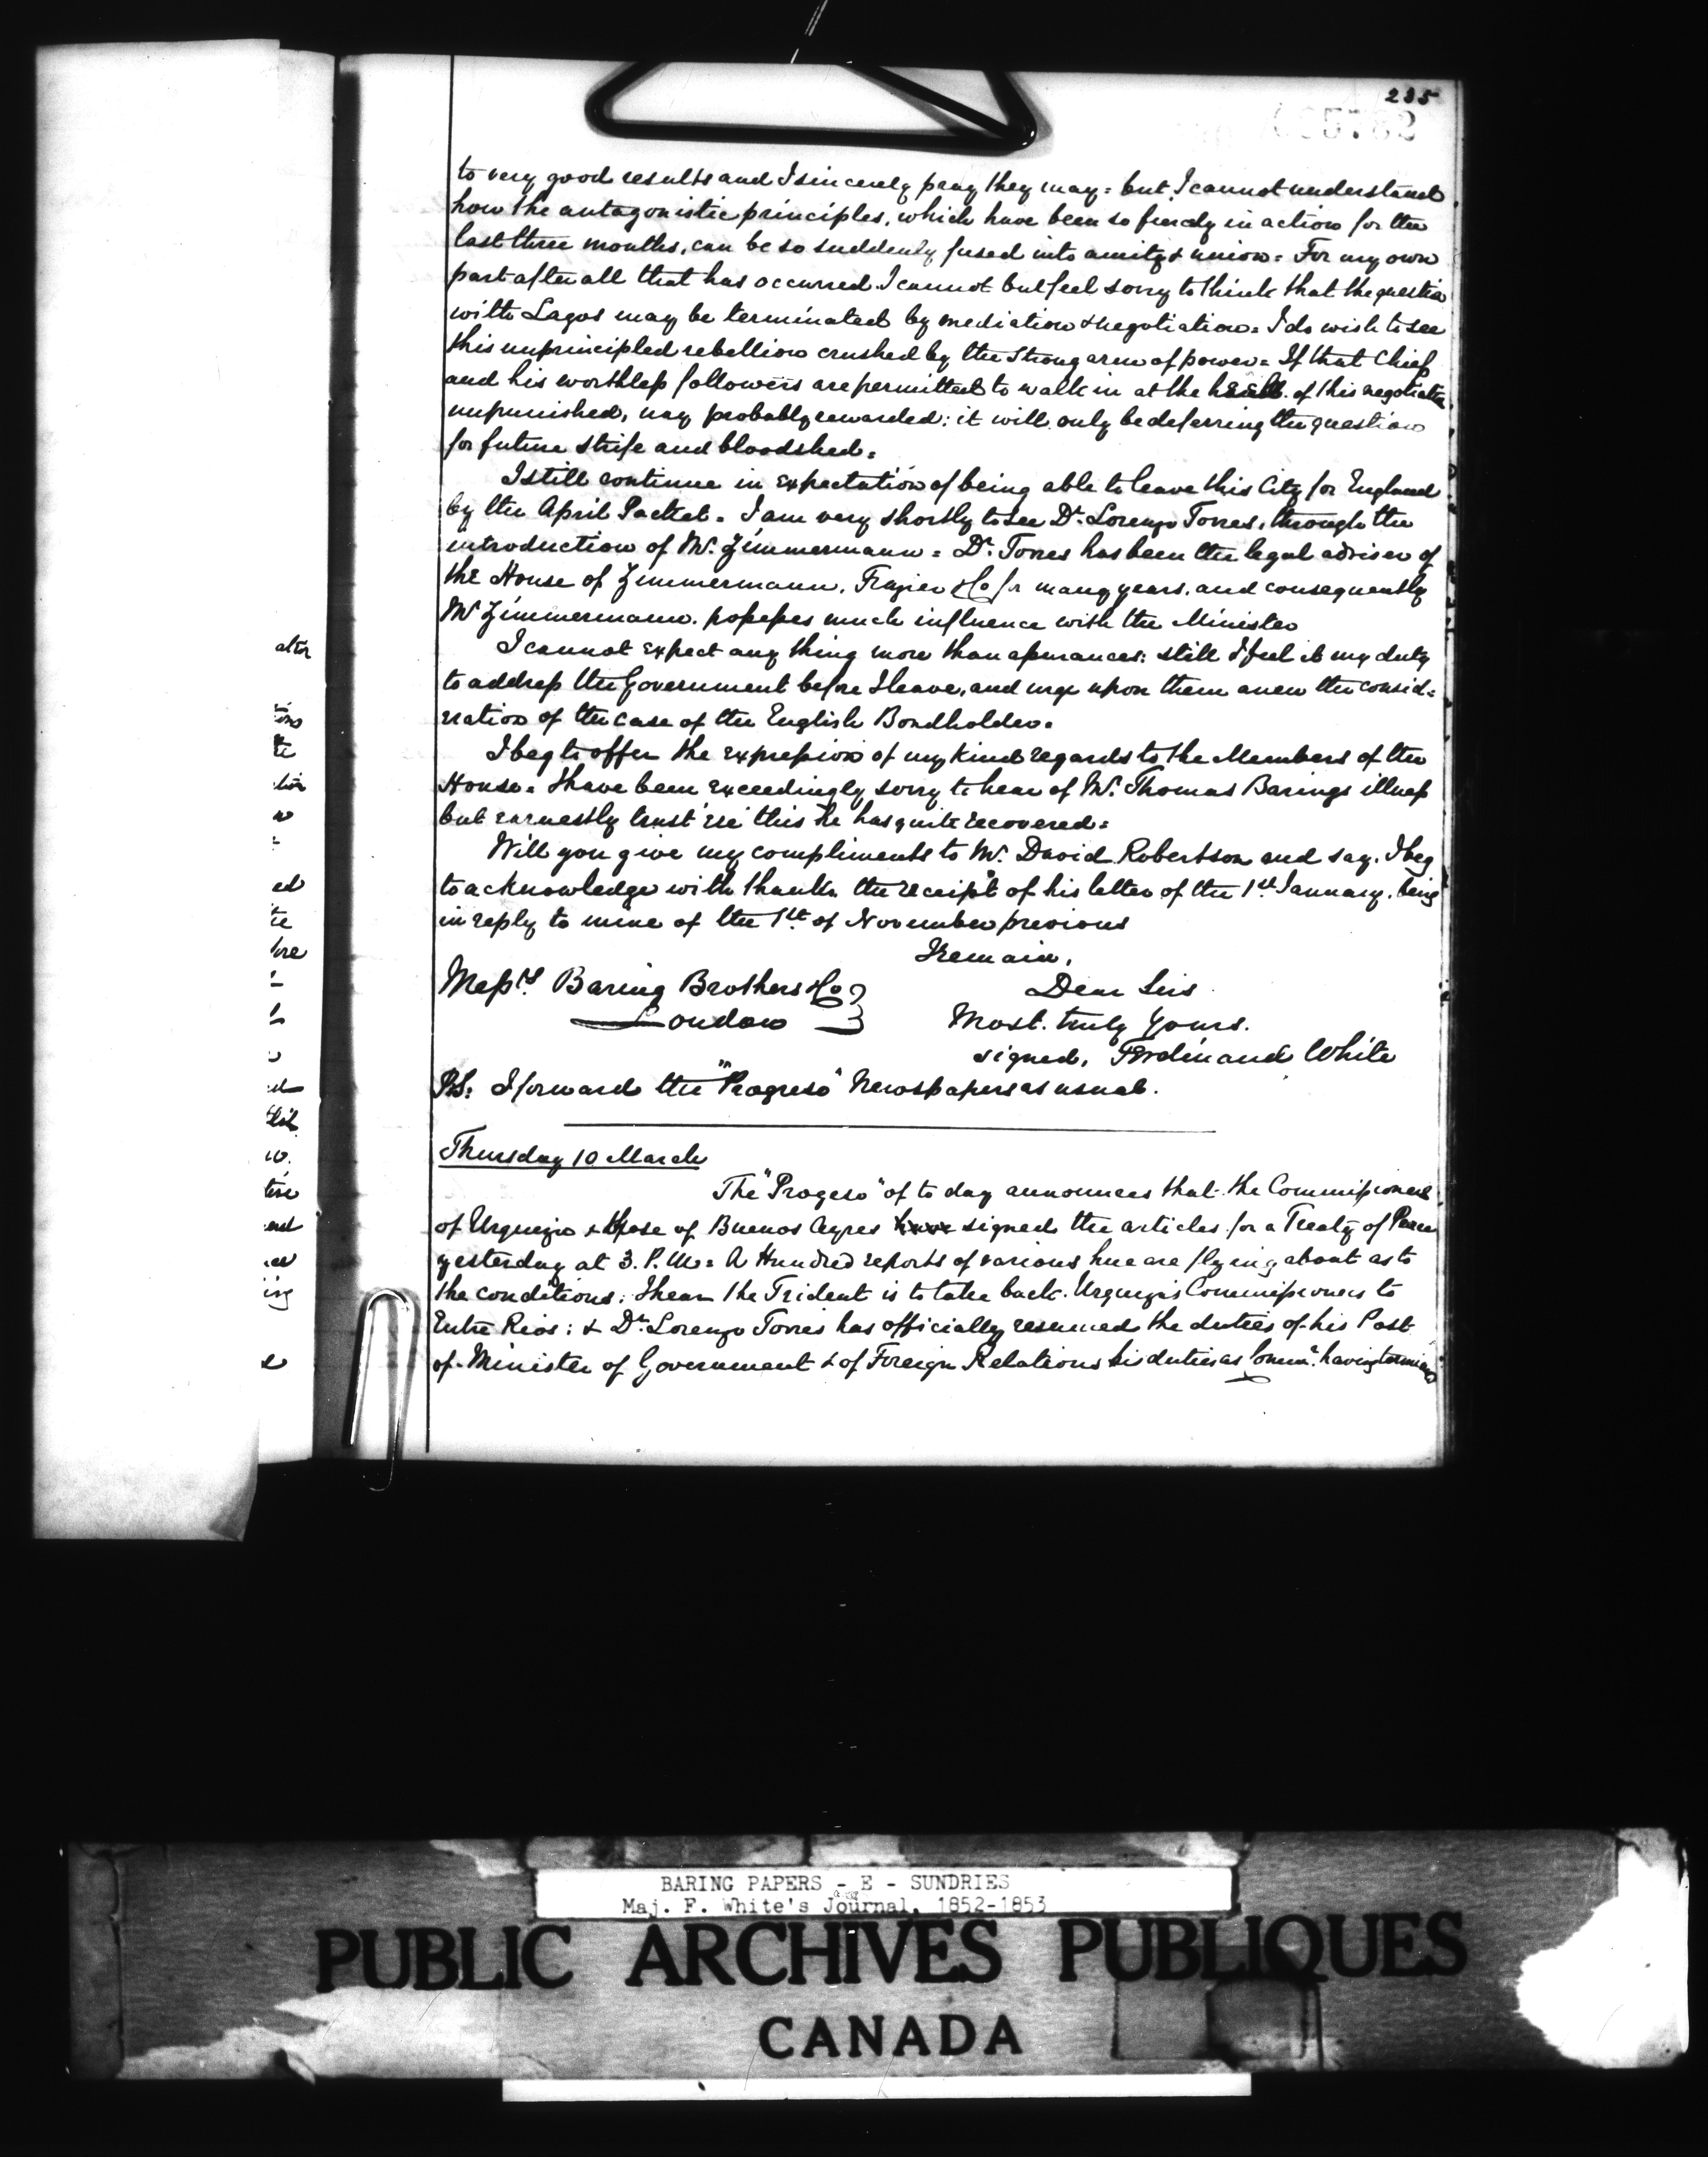 235
to very good results and I sincerely pray they may = but I cannot understand
how the antagonistic principles, which have been so fiercely in action for the
last three months, can be so suddenly fused into amity & union = For my own
part after all that has occurred I cannot but feel sorry to think that the question
with Lagos may be terminated by mediation & negotiation = I do wish to see
this unprincipled rebellion crushed by the strong arm of power = If that Chief
and his worthless followers are permitted to walk in at the heels of this negotiation
unpunished, nay probably rewarded; it will only be deferring the question
for future strife and bloodshed =
I still continue in expectation of being able to leave this City for England
by the April Packet = I am very shortly to see Dr. Lorenzo Torres, through the
introduction of Mr. Zimmermann = Dr. Torres has been the legal adviser of
the House of Zimmermann, Frazier & Co for many years, and consequently
Mr Zimmermann possesses much influence with the Minister
I cannot expect any thing more than assurances: still I feel it my duty
to address the Government before I leave, and urge upon them anew the consid=
eration of the case of the English Bondholders.
I beg to offer the expression of my kind regards to the Members of the
House = I have been exceedingly sorry to hear of Mr. Thomas Barings illness
but earnestly trust ere this he has quite recovered =
Will you give my compliments to Mr. David Robertson and say, I beg
to acknowledge with thanks the receipt of his letter of the 1st January, being
in reply to mine of the 1st of November previous
I remain,
Messrs Baring Brothers & Co
Dear Sirs
London
Most truly Yours.
signed, Ferdinand White
P.S. I forward the "Progreso" Newspapers as usual.
Thursday 10 March
The "Progreso" of to day announces that the Commissioners
of Urquiza & those of Buenos Ayres have signed the articles for a Treaty of Peace
yesterday at 3. P.M = A Hundred reports of various hue are flying about as to
the conditions. I hear the Trident is to take back Urquiza's Commissioners to
Entre Rios: & Dr. Lorenzo Torres has officially resumed the duties of his Post
of Minister of Government & of Foreign Relations his duties as Commr. having
alter
ed
te
ing
BARING PAPERS - E - SUNDRIES
Maj. F. White's Journal, 1852-1853
PUBLIC ARCHIVES PUBLIQUES
CANADA